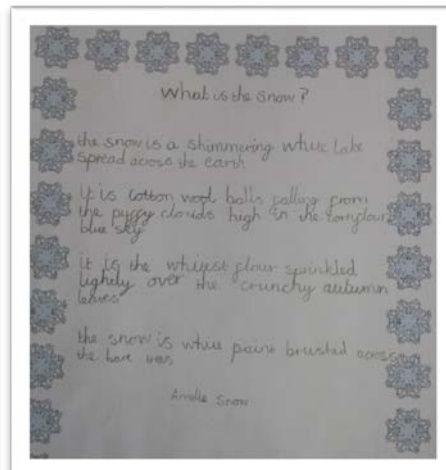 What is the Snow?
the snow is a shimmering white lake
spread across the earth
it is cotton wool balls falling from
the puffy clouds high in the cornflour
blue sky
it is the whitest flour sprinkled
lightly over the crunchy autumn
leaves
the snow is white paint brushed across
the bare trees
Amelie Snow